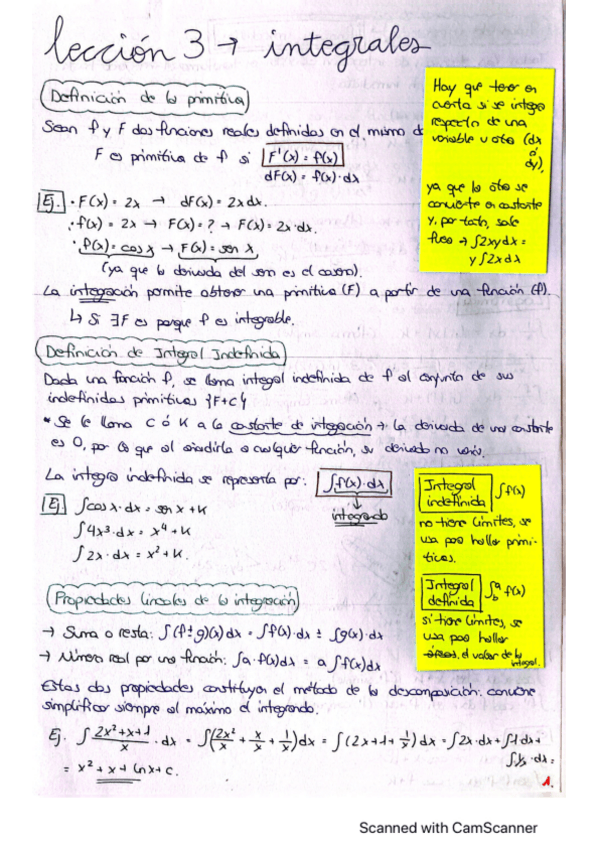 lección 3 → integrales
Definición de la primitiva
Sean f y F dos funciones reales definidas en el mismo d
F es primitiva de f si F'(x) = f(x)
dF(x) = f(x)·dx
Hay que tener en
cuenta si se integra
respecto de una
variable u otra (dx
ó
dy),
ya que la otra se
convierte en constante
y, por tanto, sale
fuera → ∫2xydx =
y∫2xdx
Ej. · F(x) = 2x → dF(x) = 2xdx.
· f(x) = 2x → F(x) = ? → F(x) = 2x·dx.
· f(x) = cos x → F(x) = sen x
(ya que la derivada del sen es el coseno).
La integración permite obtener una primitiva (F) a partir de una función (f).
↳ Si ∃F es porque f es integrable.
Definición de Integral Indefinida
Dada una función f, se llama integral indefinida de f al conjunto de sus
indefinidas primitivas {F+C}
* Se le llama C ó K a la constante de integración → La derivada de una constante
es 0, por lo que al añadirla a cualquier función, su derivada no varía.
La integra indefinida se representa por: ∫f(x)·dx
integrando
Ej ∫cosx·dx = sen x + K
∫4x³·dx = x⁴ + K
∫2x·dx = x² + K.
Integral indefinida ∫f(x)
no tiene límites, se
usa para hallar primi-
tivas.
Integral definida ∫ᵃ_b f(x)
si tiene límites, se
usa para hallar
áreas, el valor de la
integral.
Propiedades lineales de la integración
→ Suma o resta: ∫(f±g)(x)dx = ∫f(x)·dx ± ∫g(x)·dx
→ Número real por una función: ∫a·f(x)dx = a∫f(x)dx
Estas dos propiedades constituyen el método de la descomposición: conviene
simplificar siempre al máximo el integrando.
Ej. ∫ (2x²+x+1)/x · dx = ∫(2x²/x + x/x + 1/x)dx = ∫(2x+1+1/x)dx = ∫2x·dx + ∫1·dx +
∫1/x·dx =
= x² + x + lnx + c.
1.
Scanned with CamScanner